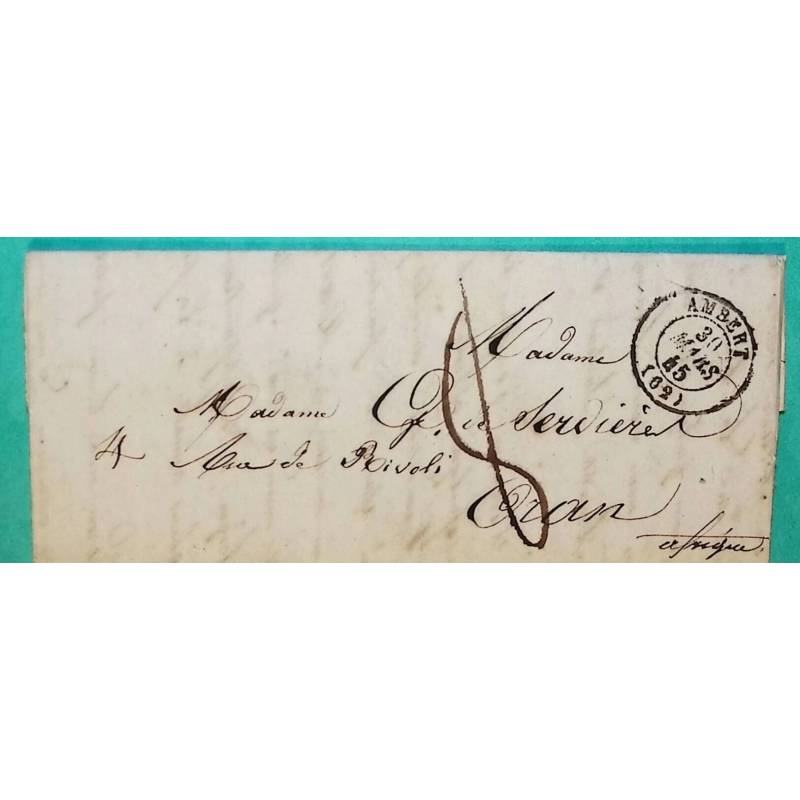 AMBERT
30
MARS
45
(62)
Madame
Madame de Serdière
4 Rue de Rivoli
8
Oran
afrique